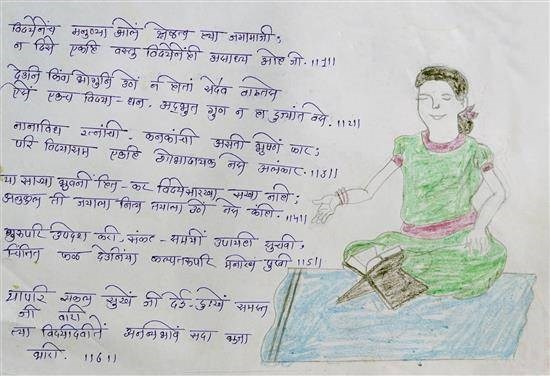 विद्येनेंच मनुष्या आलें श्रेष्ठत्व ह्या जगामाजीं;
न दिसे एकहि वस्तु विद्येनेंही असाध्य आहे जी. ।।1।।
देउनि किंवा भोगुनि उणें न होतां सदैव वाढतसे
ऐसें एकच विद्या-धन, अद्भुत गुण न हा दुज्यांत वसे. ।।2।।
नानाविध रत्नांचीं, कनकांचीं असति भूषणें फार;
परि विद्येसम एकहि शोभादायक नसे अलंकार. ।।3।।
या साऱ्या भुवनीं हित-कर विद्येसारखा सखा नाहीं;
अनुकूल ती जयाला नित्य तयाला उणें नसे कांहीं. ।।4।।
गुरुपरि उपदेश करी, संकट-समयीं उपायही सुचवी;
चिंतित फळ देउनियां कल्पतरूपरि मनोरथ पुरवी ।।5।।
यापरि सकल सुखें जी देई, दुःखें समस्त
जी वारी
त्या विद्यादेवीतें अनन्यभावें सदा भजा
भारी. ।।6।।